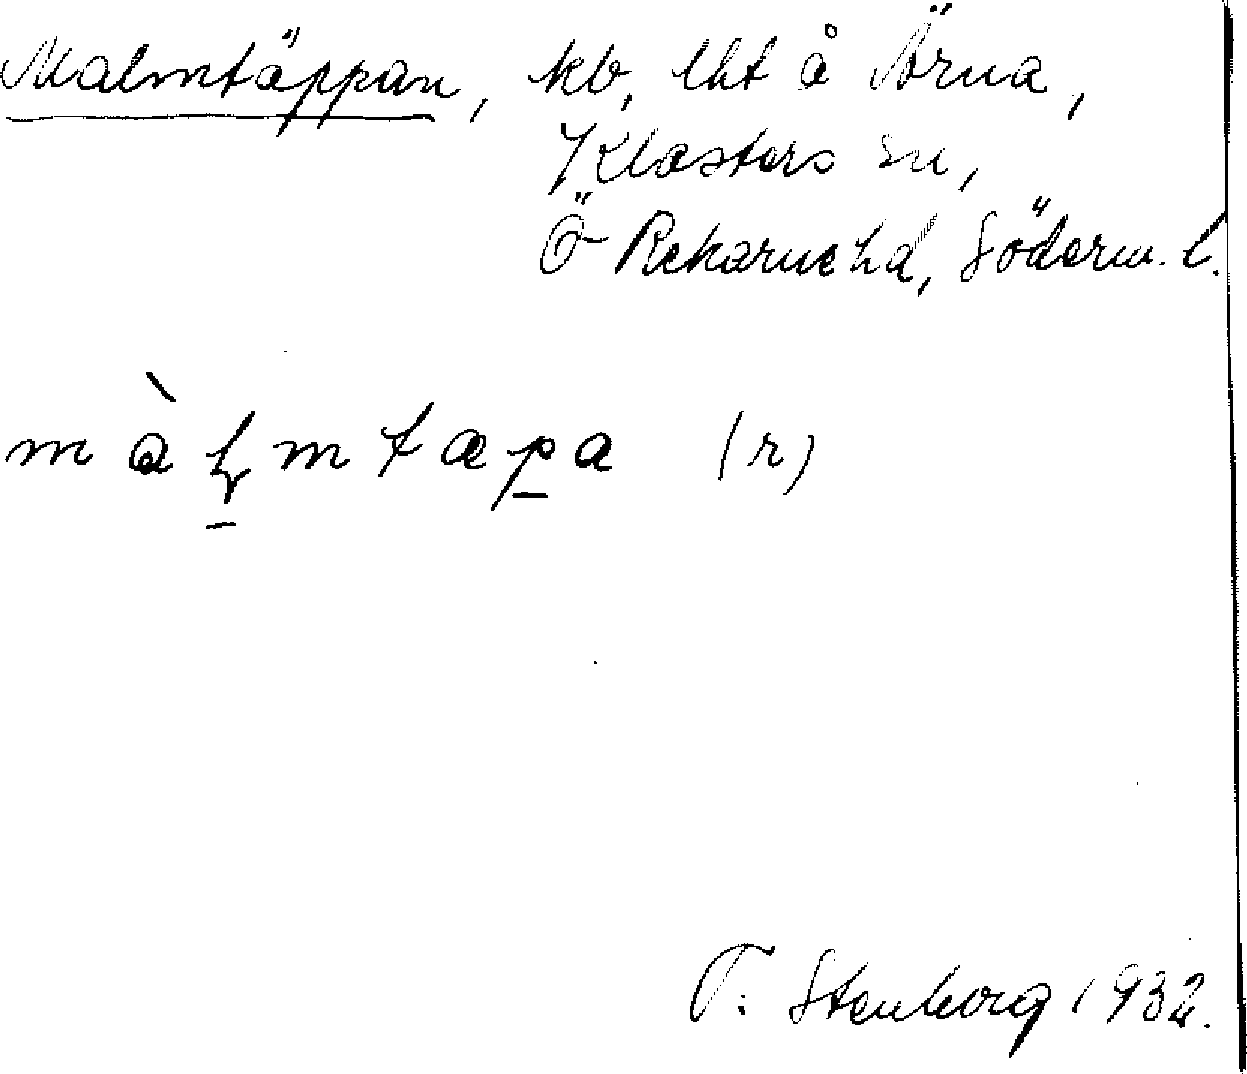 Malmtäppan, kb, lht å Ärna,
Klosters sn,
Ö Rekarne hd, Söderm. l.
màl̲mtæp̲a (r)
T. Stenborg 1932.